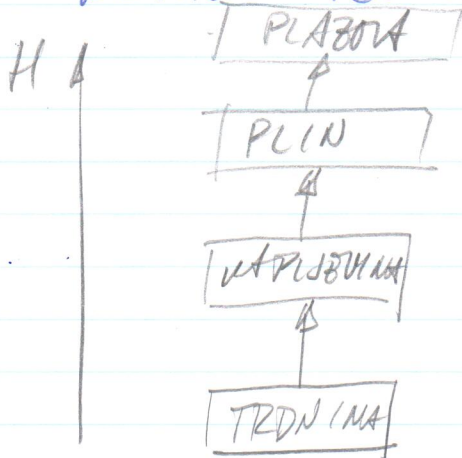 PLAZMA
H
PLIN
KAPLJEVINA
TRDNINA